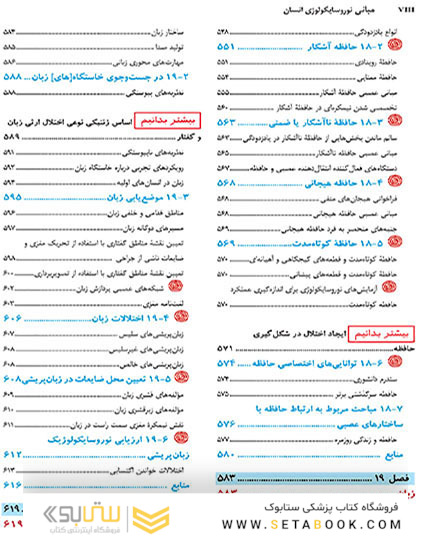 VIII مبانی نوروسایکولوژی انسان
انواع یادزدودگی ۵۴۸
۱۸-۲ حافظه آشکار ۵۵۱
حافظهٔ رویدادی ۵۵۱
حافظهٔ معنایی ۵۵۴
مبانی عصبی حافظهٔ آشکار ۵۵۵
تخصصی شدن نیمکره‌ای در حافظهٔ آشکار ۵۶۰
۱۸-۳ حافظه ناآشکار یا ضمنی ۵۶۳
سالم ماندن بخش‌هایی از حافظهٔ ناآشکار در یادزدودگی ۵۶۳
مبانی عصبی حافظهٔ ناآشکار ۵۶۵
دستگاه‌های فعال‌کننده انتقال‌دهنده عصبی و حافظه ۵۶۷
۱۸-۴ حافظه هیجانی ۵۶۸
فراخوانی هیجان‌های منفی ۵۶۸
مبانی عصبی حافظهٔ هیجانی ۵۶۸
جنبه‌های منحصر به فرد حافظه هیجانی ۵۶۹
۱۸-۵ حافظهٔ کوتاه‌مدت ۵۶۹
حافظهٔ کوتاه‌مدت و قطعه‌های گیجگاهی و آهیانه‌ای ۵۷۰
حافظهٔ کوتاه‌مدت و قطعه‌های پیشانی ۵۷۰
آزمایش‌های نوروسایکولوژی برای اندازه‌گیری عملکرد
حافظهٔ کوتاه‌مدت ۵۷۰
بیشتر بدانیم ایجاد اختلال در شکل‌گیری
حافظه ۵۷۱
۱۸-۶ توانایی‌های اختصاصی حافظه ۵۷۴
سندرم دانشوری ۵۷۴
حافظهٔ سرگذشتی برتر ۵۷۵
۱۸-۷ مباحث مربوط به ارتباط حافظه با
ساختارهای عصبی ۵۷۶
حافظه و زندگی روزمره ۵۷۷
منابع ۵۸۰
فصل ۱۹ ۵۸۳
زبان ۵۸۳
ساختار زبان ۵۸۴
تولید صدا ۵۸۵
مهارت‌های محوری زبانی ۵۸۶
۱۹-۲ در جست‌وجوی خاستگاه[های] زبان ۵۸۸
نظریه‌های پیوستگی ۵۸۸
بیشتر بدانیم اساس ژنتیکی نوعی اختلال ارثی زبان
و گفتار ۵۸۹
نظریه‌های ناپیوستگی ۵۹۱
رویکردهای تجربی درباره خاستگاه زبان ۵۹۲
زبان در انسان‌های اولیه ۵۹۴
۱۹-۳ موضع‌یابی زبان ۵۹۵
مناطق قدامی و خلفی زبان ۵۹۶
مسیرهای دوگانه زبان ۵۹۷
تعیین نقشهٔ مناطق گفتاری با استفاده از تحریک مغزی و
ضایعات ناشی از جراحی ۵۹۸
تعیین نقشهٔ مناطق گفتاری با استفاده از تصویربرداری ۶۰۰
شبکه‌های عصبی پردازش زبان ۶۰۲
لغت‌نامه مغزی ۶۰۳
۱۹-۴ اختلالات زبان ۶۰۶
زبان‌پریشی‌های سلیس ۶۰۷
زبان‌پریشی‌های غیرسلیس ۶۰۸
زبان‌پریشی‌های خالص ۶۰۸
۱۹-۵ تعیین محل ضایعات در زبان‌پریشی ۶۰۸
مؤلفه‌های قشری زبان ۶۰۹
مؤلفه‌های زیرقشری زبان ۶۱۰
نقش نیمکرهٔ مغزی سمت راست در زبان ۶۱۱
۱۹-۶ ارزیابی نوروسایکولوژیک
زبان‌پریشی ۶۱۲
اختلالات خواندن اکتسابی ۶۱۳
منابع ۶۱۶
۶۱۹
۶۱۹
ستابوک
فروشگاه اینترنتی کتاب
فروشگاه کتاب پزشکی ستابوک
WWW.SETABOOK.COM